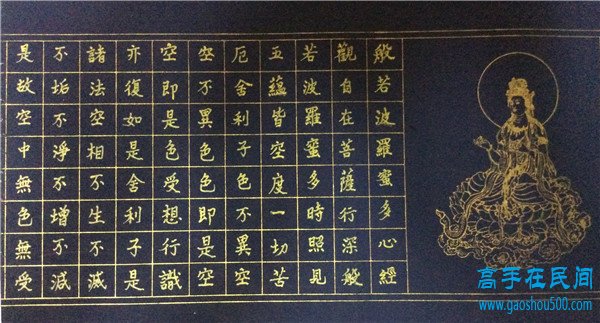 般若波羅蜜多心經
觀自在菩薩行深般
若波羅蜜多時照見
五蘊皆空度一切苦
厄舍利子色不異空
空不異色色即是空
空即是色受想行識
亦復如是舍利子是
諸法空相不生不滅
不垢不淨不增不減
是故空中無色無受
高手在民间
www.gaoshou500.com